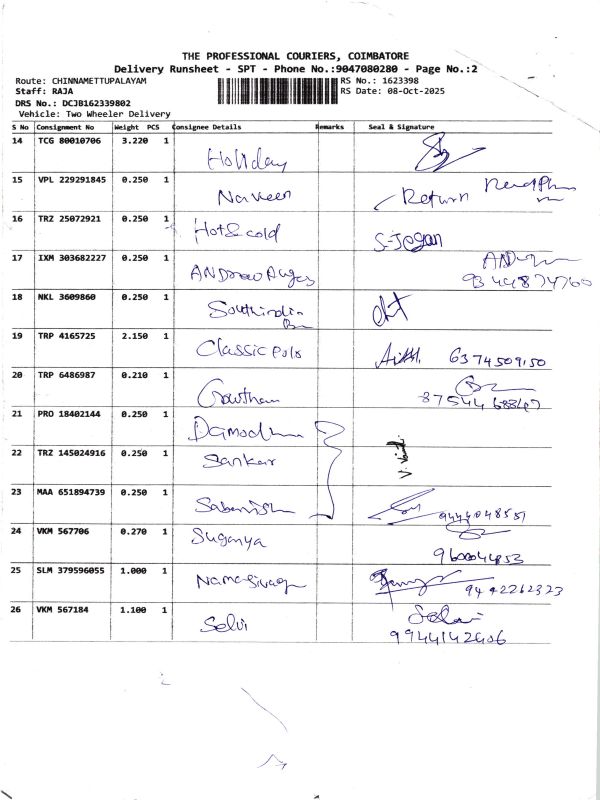 THE PROFESSIONAL COURIERS, COIMBATORE
Delivery Runsheet - SPT - Phone No.:9047080280 - Page No.:2
Route: CHINNAMETTUPALAYAM
RS No.: 1623398
Staff: RAJA
RS Date: 08-Oct-2025
DRS No.: DCJB162339802
Vehicle: Two Wheeler Delivery
S No Consignment No Weight PCS Consignee Details Remarks Seal & Signature
14 TCG 80010706 3.220 1 Holiday
15 VPL 229291845 0.250 1 Naveen Return
16 TRZ 25072921 0.250 1 Hot & cold S-Jegan
17 IXM 303682227 0.250 1 ANDrew
9344874760
18 NKL 3609860 0.250 1 Southindia
19 TRP 4165725 2.150 1 Classic Polo 6374509150
20 TRP 6486987 0.210 1 Gowtham
21 PRO 18402144 0.250 1
22 TRZ 145024916 0.250 1 Sankar
23 MAA 651894739 0.250 1
24 VKM 567706 0.270 1 Suganya
25 SLM 379596055 1.000 1 9442262323
26 VKM 567184 1.100 1 Selvi